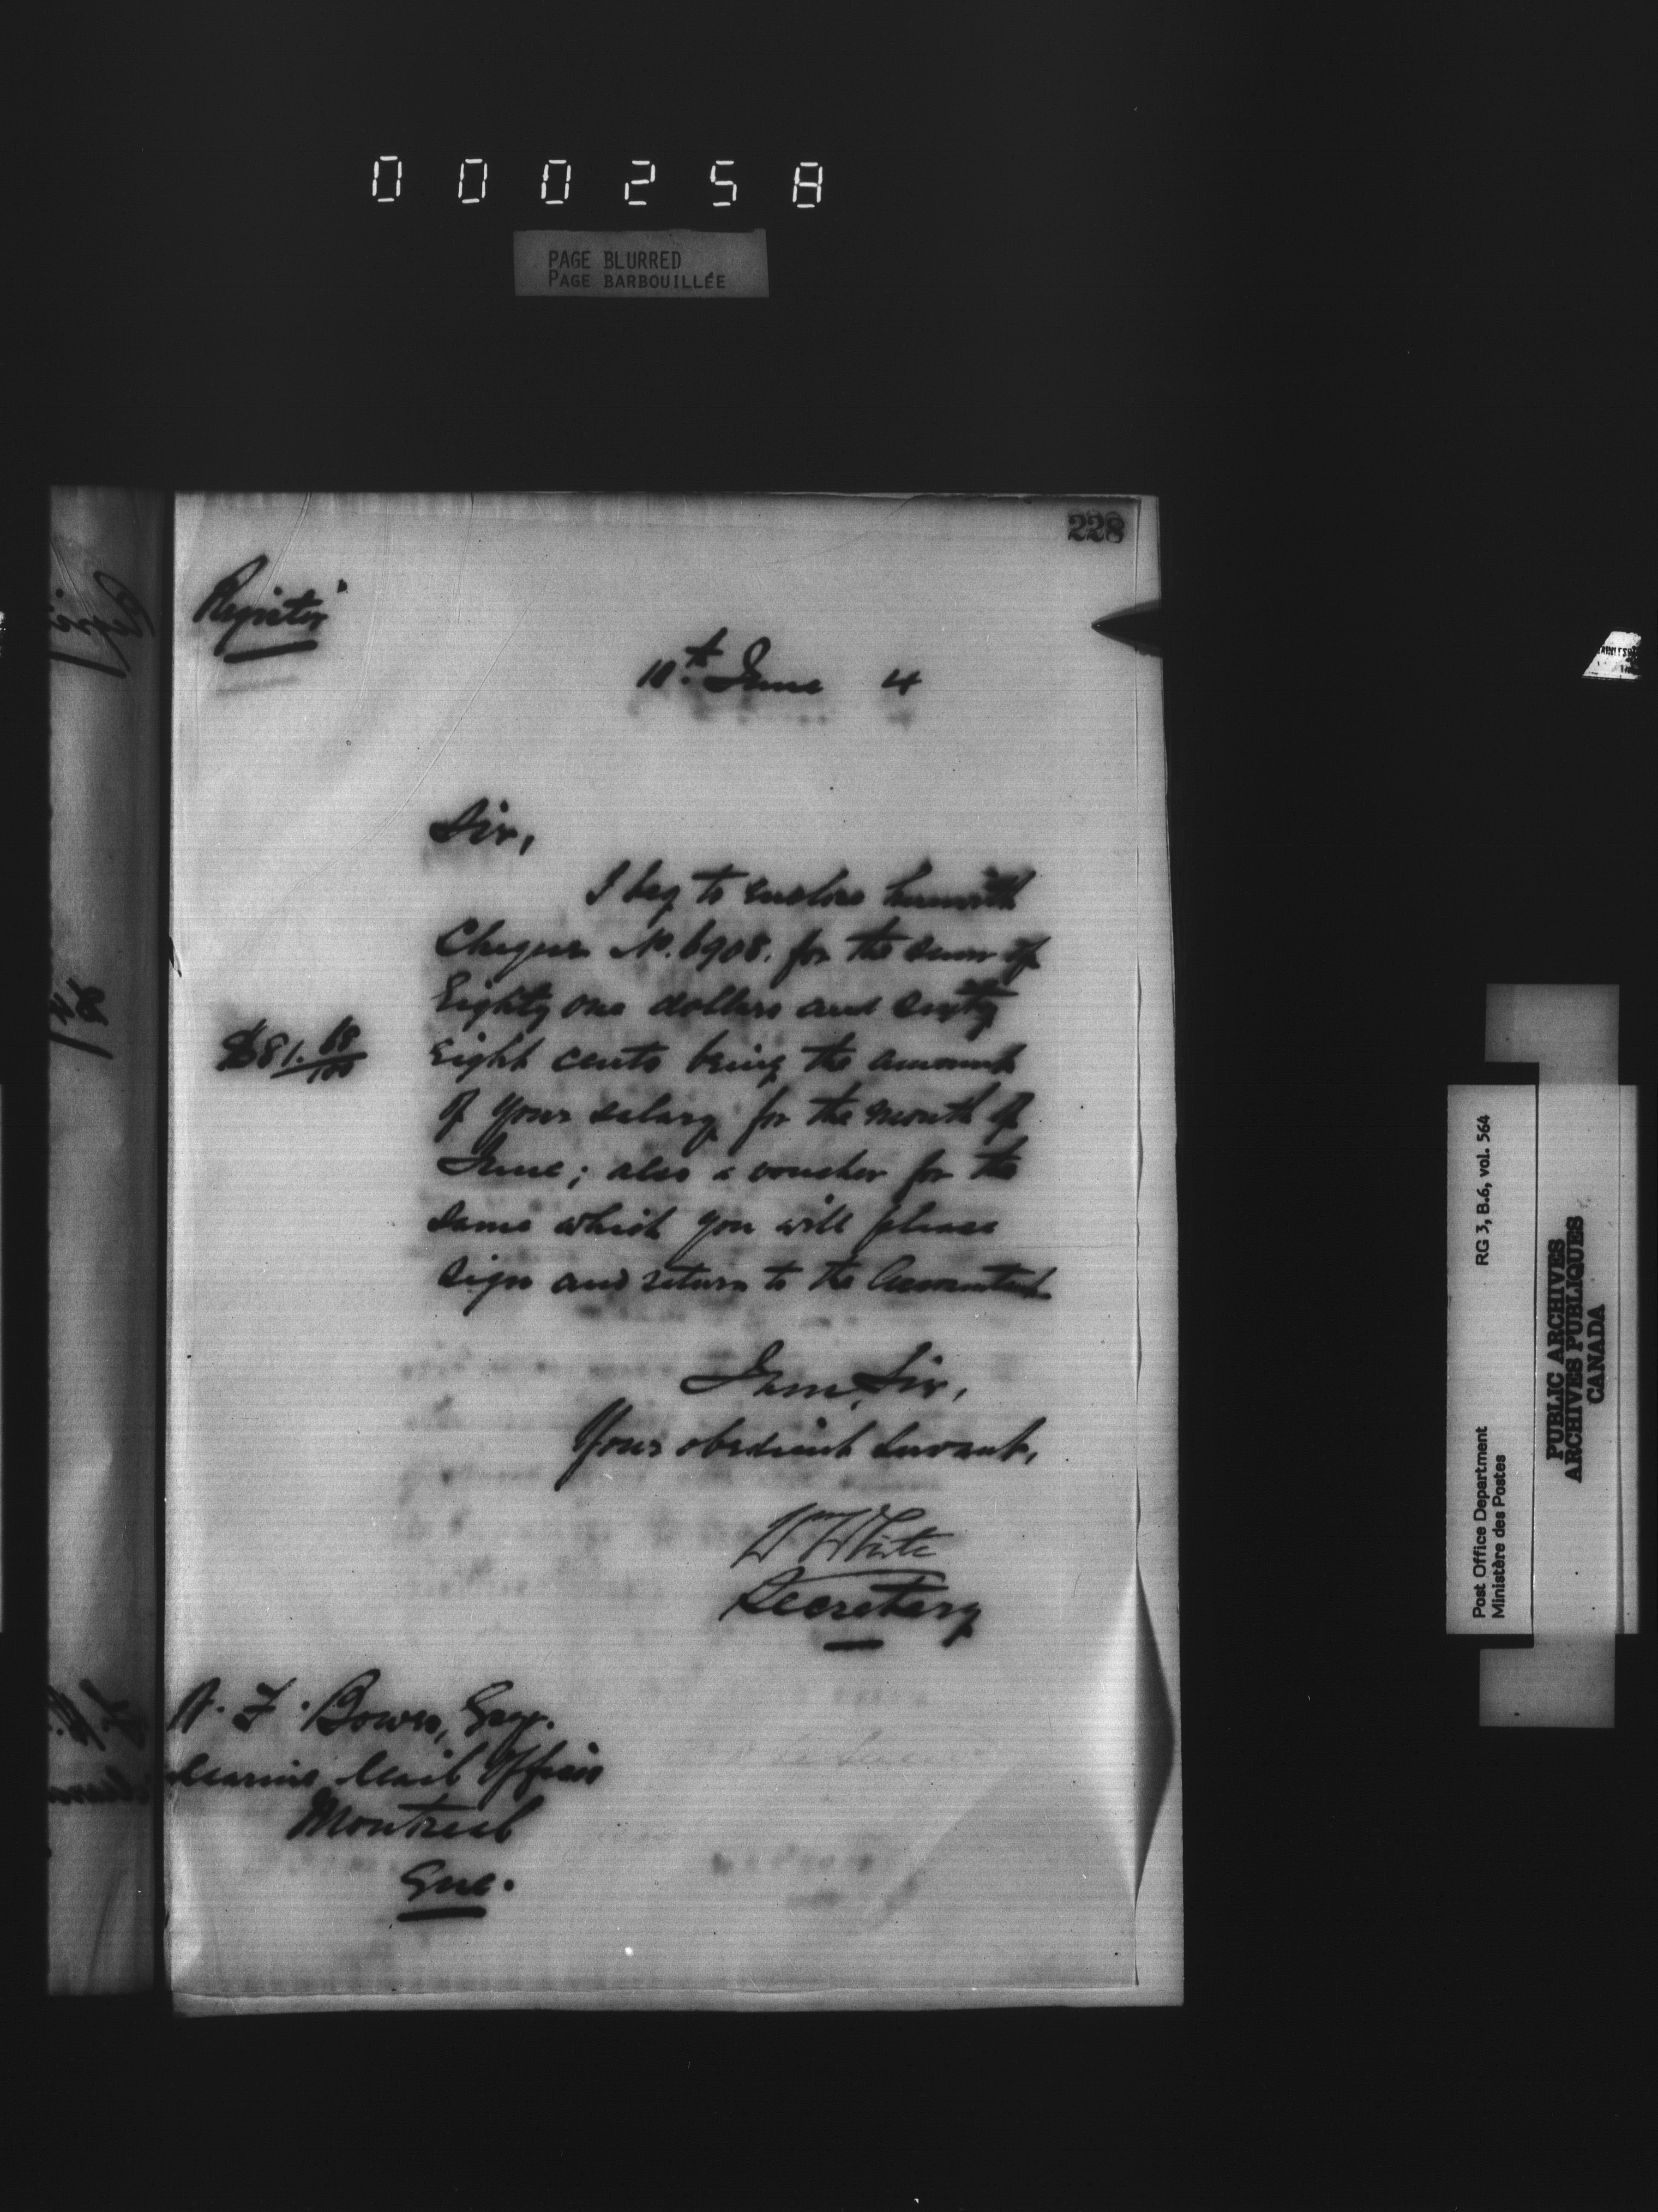 000258
PAGE BLURRED
PAGE BARBOUILLÉE
228
Register
11th June 4
Sir,
I beg to enclose herewith
Cheque No. 6908. for the sum of
Eighty one dollars and sixty
$81.68/100
Eight cents being the amount
of your salary for the month of
June; also a voucher for the
same which you will please
sign and return to the Accountant
I am, Sir,
Your obedient Servant,
Wm White
Secretary
F. Bowes, Esq.
Marine Mail Officer
Montreal
Que.
Post Office Department
Ministère des Postes
RG 3, B.6, vol. 564
PUBLIC ARCHIVES
ARCHIVES PUBLIQUES
CANADA